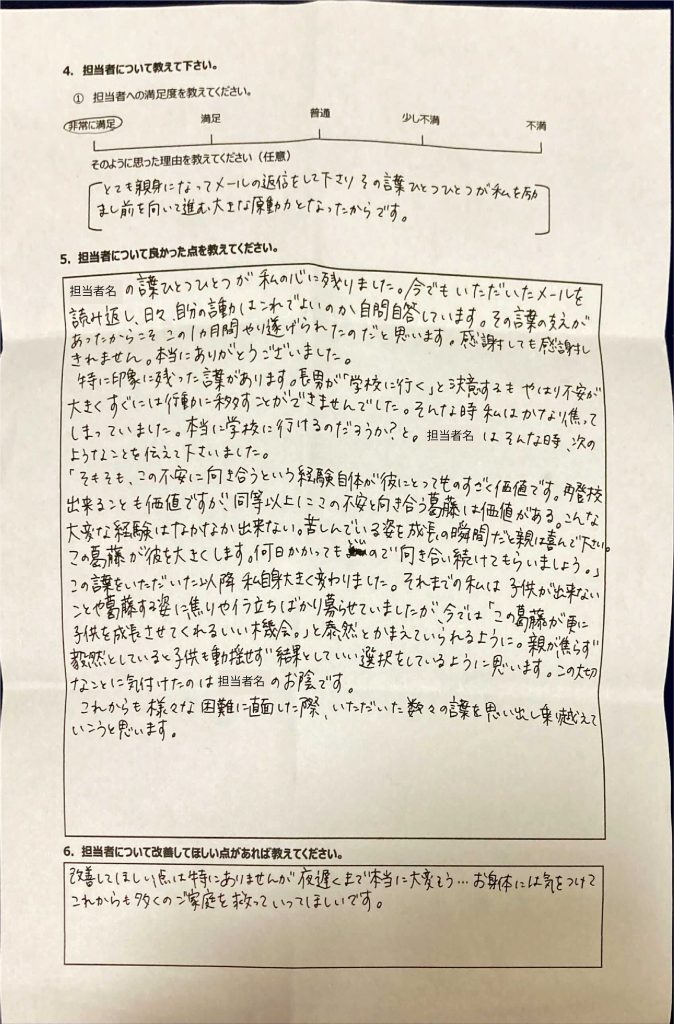 4. 担当者について教えて下さい。
① 担当者への満足度を教えてください。
非常に満足 満足 普通 少し不満 不満
そのように思った理由を教えてください（任意）
とても親身になってメールの返信をして下さり その言葉ひとつひとつが私を励
まし前を向いて進む大きな原動力となったからです。
5. 担当者について良かった点を教えてください。
担当者名 の言葉ひとつひとつが 私の心に残りました。今でもいただいたメールを
読み返し、日々、自分の言動はこれでよいのか自問自答しています。その言葉の支えが
あったからこそ この1カ月間やり遂げられたのだと思います。感謝しても感謝し
きれません。本当にありがとうございました。
特に印象に残った言葉があります。長男が「学校に行く」と決意するも やはり不安が
大きくすぐには行動に移すことができませんでした。そんな時 私はかなり焦って
しまっていました。本当に学校に行けるのだろうか？と。担当者名 はそんな時、次の
ようなことを伝えて下さいました。
「そもそも、この不安に向き合うという経験自体が彼にとってものすごく価値です。再登校
出来ることも価値ですが、同等以上にこの不安と向き合う葛藤は価値がある。こんな
大変な経験はなかなか出来ない。苦しんでいる姿を成長の瞬間だと親は喜んで下さい。
この葛藤が彼を大きくします。何日かかっても ので向き合い続けてもらいましょう。」
この言葉をいただいた以降 私自身大きく変わりました。それまでの私は 子供が出来ない
ことや葛藤する姿に焦りやイラ立ちばかり募らせていましたが、今では「この葛藤が更に
子供を成長させてくれるいい機会。」と泰然とかまえていられるように。親が焦らず
毅然としていると子供も動揺せず 結果としていい選択をしているように思います。この大切
なことに気付けたのは 担当者名 のお陰です。
これからも 様々な困難に直面した際、いただいた数々の言葉を思い出し乗り越えて
いこうと思います。
6. 担当者について改善してほしい点があれば教えてください。
改善してほしい点は特にありませんが 夜遅くまで本当に大変そう…お身体には気をつけて
これからも多くのご家庭を救っていってほしいです。